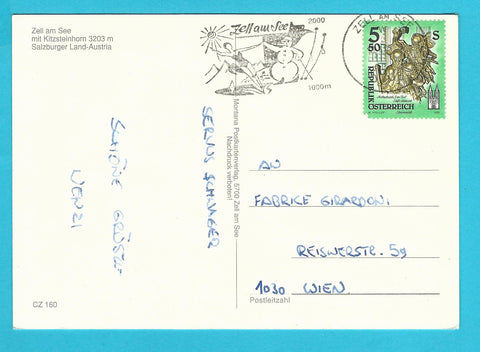 Zell am See
mit Kitzsteinhorn 3203 m
Salzburger Land-Austria
Zell am See
2000
1000m
ZELL AM SEE
5 50 S
REPUBLIK
ÖSTERREICH
SERVUS SCHWAGER
SCHÖNE GRÜSSE
WENZI
Montana Postkartenverlag, 5700 Zell am See
Nachdruck verboten!
AN
FABRICE GIRARDONI
REISNERSTR. 59
1030 WIEN
Postleitzahl
CZ 160